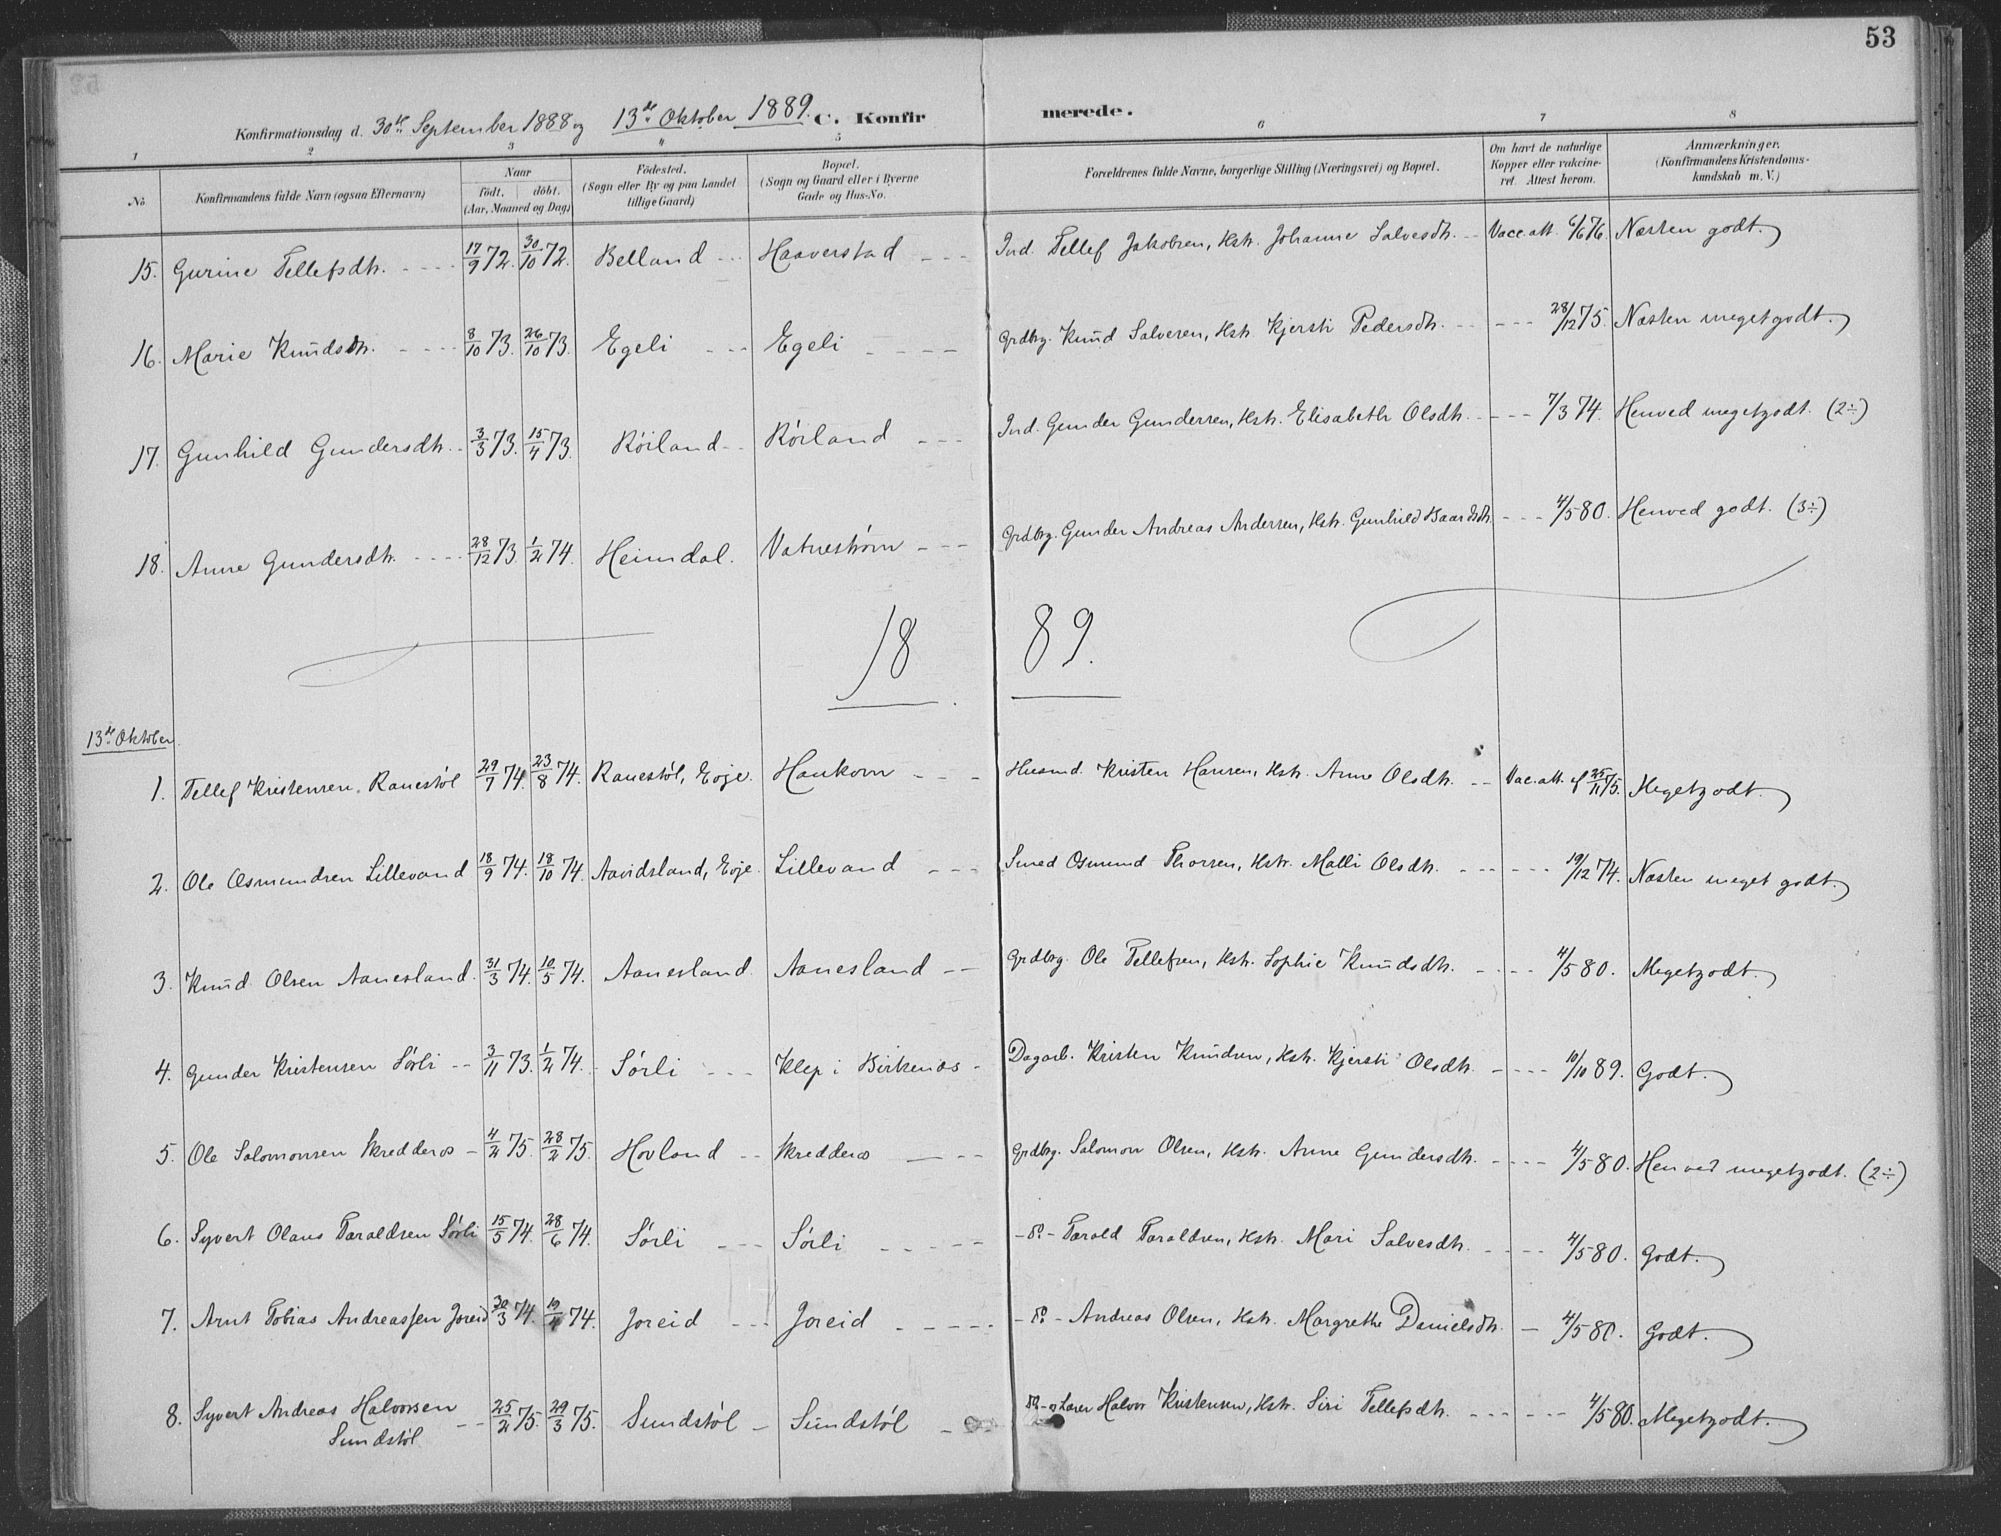 53
Konfirmationsdag d. 30te September 1888 og 13de Oktober 1889. C. Konfirmerede.
1 2 3 4 5 6 7 8
No Konfirmandens fulde Navn (ogsaa Efternavn) Naar født, døbt. (Aar, Maaned og Dag) Fødested. (Sogn eller By og paa Landet tillige Gaard) Bopæl. (Sogn og Gaard eller i Byerne Gade og Hus-No. Forældrenes fulde Navne, borgerlige Stilling (Næringsvei) og Bopæl. Om havt de naturlige Kopper eller vakcineret. Attest herom. Anmærkninger. (Konfirmandens Kristendomskundskab m. V.)
15. Gurine Tellefsdtr. 17/9 72. 30/10 72. Belland Haaverstad Ind. Tellef Jakobsen, Kstr. Johanne Salvesdtr. Vacc. att. 6/6 76. Næsten godt.
16. Marie Knudsdtr. 8/10 73. 26/10 73. Egeli Egeli Grdbrg. Knud Salvesen, Kstr. Kjersti Pedersdtr. 28/12 75. Næsten megetgodt.
17. Gunhild Gundersdtr. 3/3 73. 15/4 73. Røiland Røiland Ind. Gunder Gundersen, Kstr. Elisabeth Olsdtr. 7/3 74. Henved megetgodt. (2÷)
18. Anne Gundersdtr. 28/12 73. 1/2 74. Heimdal. Vatnestrøm Grdbrg. Gunder Andreas Andersen, Kstr. Gunhild Baardsdtr. 4/5 80. Henved godt. (3÷)
18 89.
13de Oktober
1. Tellef Kristensen Ranestøl 29/7 74. 23/8 74. Ranestøl, Evje. Haukom Husmd. Kristen Hansen, Kstr. Anne Olsdtr. Vac. att. af 25/11 75. Megetgodt.
2. Ole Osmundsen Lillevand 18/9 74. 18/10 74. Aavidsland, Evje. Lillevand Smed Osmund Thorsen, Kstr. Malli Olsdtr. 19/12 74. Næsten meget godt.
3. Knud Olsen Aanesland. 31/3 74. 10/5 74. Aanesland Aanesland Grdbrg. Ole Tellefsen, Kstr. Sophie Knudsdtr. 4/5 80. Megetgodt.
4. Gunder Kristensen Sørli 3/11 73. 1/2 74. Sørli Klep i Birkenæs Dagarb. Kristen Knudsen, Kstr. Kjersti Olsdtr. 10/10 89. Godt.
5. Ole Salomonsen Skredderås 4/2 75. 28/2 75. Hovland Skredderås Grdbrg. Salomon Olsen, Kstr. Anne Gundersdtr. 4/5 80. Henved megetgodt. (2÷)
6. Syvert Olaus Taraldsen Sørli 15/5 74. 28/6 74. Sørli Sørli - do - Tarald Taraldsen, Kstr. Mari Salvesdtr. 4/5 80. Godt.
7. Arnt Tobias Andreassen Joreid 30/3 74. 19/4 74. Joreid Joreid - do - Andreas Olsen, Kstr. Margrethe Danielsdtr. 4/5 80. Godt.
8. Syvert Andreas Halvorsen 25/2 75. 29/3 75. Sundstøl Sundstøl - do - og Lærer Halvor Kristensen, Kstr. Siri Tellefsdtr. 4/5 80. Megetgodt.
Sundstøl